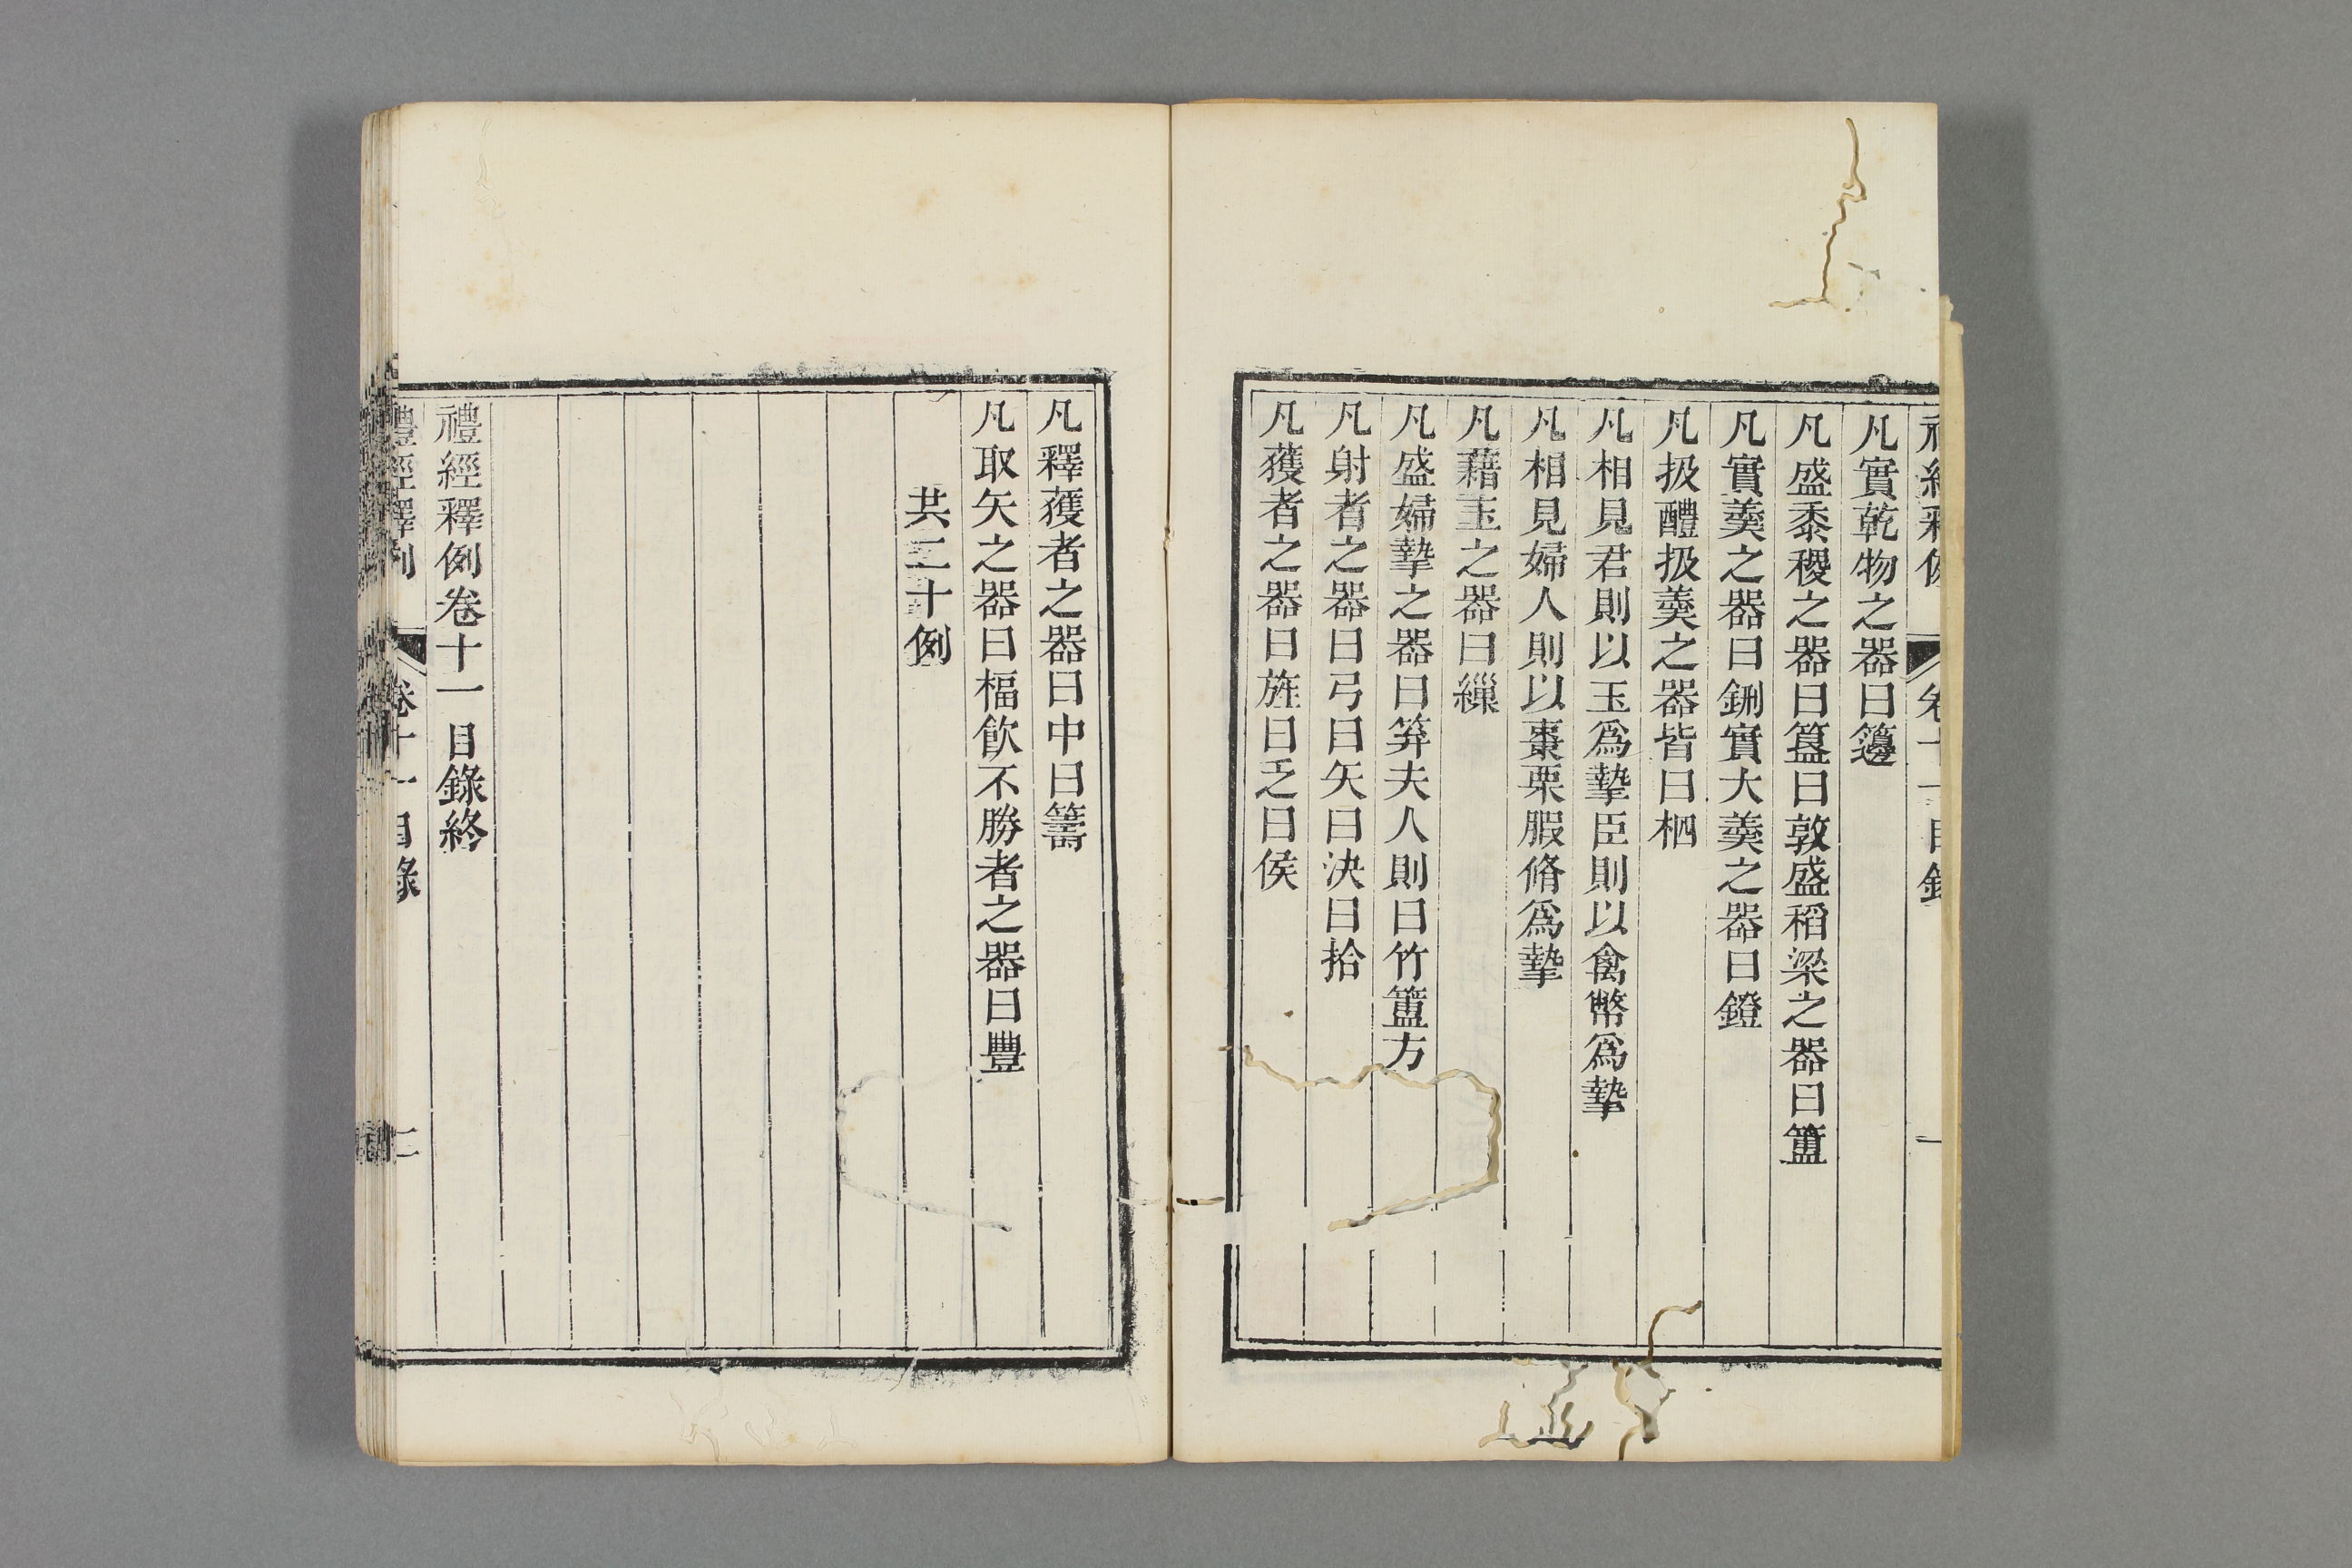 凡實乾物之器曰籩
凡盛黍稷之器曰簋曰敦盛稻粱之器曰簠
凡實羹之器曰鉶實大羹之器曰鐙
凡扱醴扱羹之器皆曰柶
凡相見君則以玉爲摯臣則以禽幣爲摯
凡相見婦人則以棗栗腶脩爲摯
凡藉玉之器曰繅
凡盛婦摯之器曰笲夫人則曰竹簠方
凡射者之器曰弓曰矢曰決曰拾
凡獲者之器曰旌曰乏曰侯
凡釋獲者之器曰中曰籌
凡取矢之器曰楅飮不勝者之器曰豐
共二十例
禮經釋例卷十一目錄終
禮經釋例 卷十一目錄 二